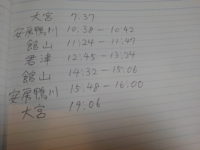 大宮 7:37
安房鴨川 10:38 - 10:42
館山 11:24 - 11:47
君津 12:45 - 13:24
館山 14:32 - 15:06
安房鴨川 15:48 - 16:00
大宮 19:06